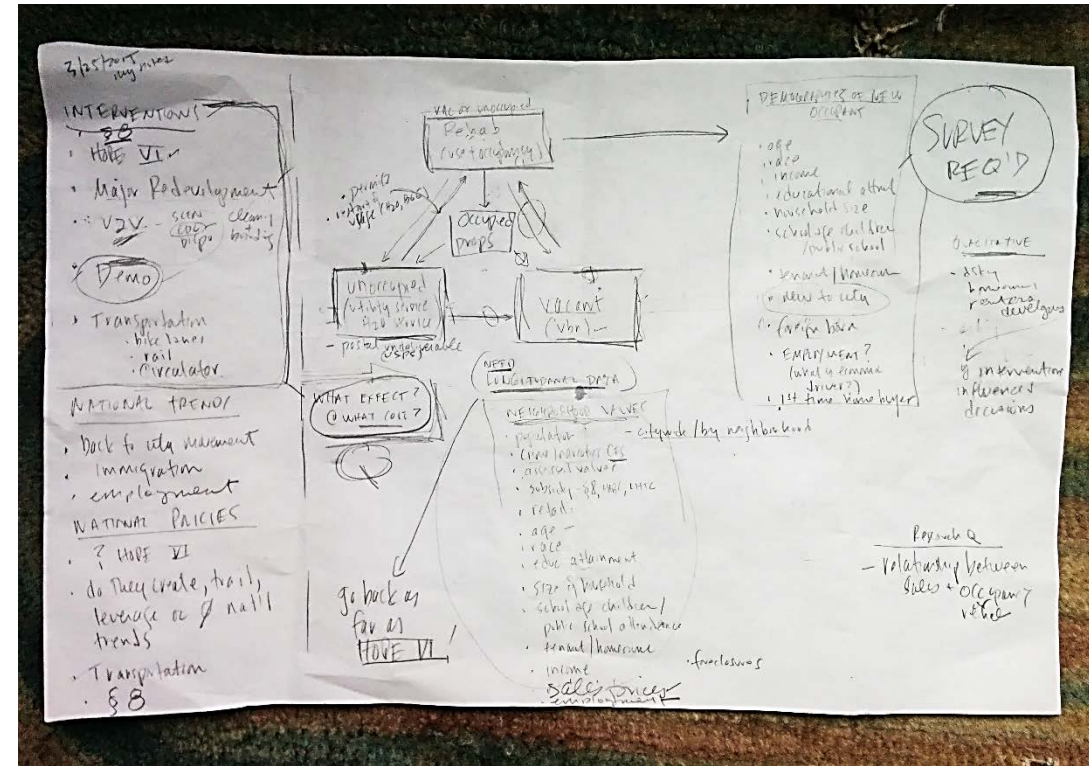 my notes
INTERVENTIONS
· § 8
· HOPE VI
· Major Redevelopment
· V2V - cleaning
+
building
· Demo
· Transportation
· bike lanes
· rail
· circulator
NATIONAL TRENDS
· back to city movement
· immigration
· employment
NATIONAL POLICIES
· ? HOPE VI
· do they create, trail,
leverage or nat'l
trends
· Transportation
· § 8
VAC or unoccupied
Rehab
(use + occupancy)
· permits
Occupied
props
unoccupied
(utility service
H2O service)
- postal undeliverable
(USPS)
Vacant
(VBN) -
WHAT EFFECT?
@ WHAT COST?
Q
NEED
LONGITUDINAL DATA
NEIGHBORHOOD VALUES
· population - citywide / by neighborhood
· crime
· assessed values
· subsidy - §8, LIHTC
· age -
· race
· educ attainment
· size of household
· school age children /
public school attendance
· tenant / homeowner
· income
· foreclosures
· sales prices
· employment
go back as
far as
HOPE VI
DEMOGRAPHICS OF NEW
OCCUPANT
· age
· race
· income
· educational attnmt
· household size
· school age children
/ public school
· tenant / homeown
· new to city
· foreign born
· EMPLOYMENT?
(what is economic
driver?)
· 1st time home buyer
SURVEY
REQ'D
QUALITATIVE
homeowners
renters
developers
intervention
influences
decisions
Research Q
- relationship between
sales + occupancy